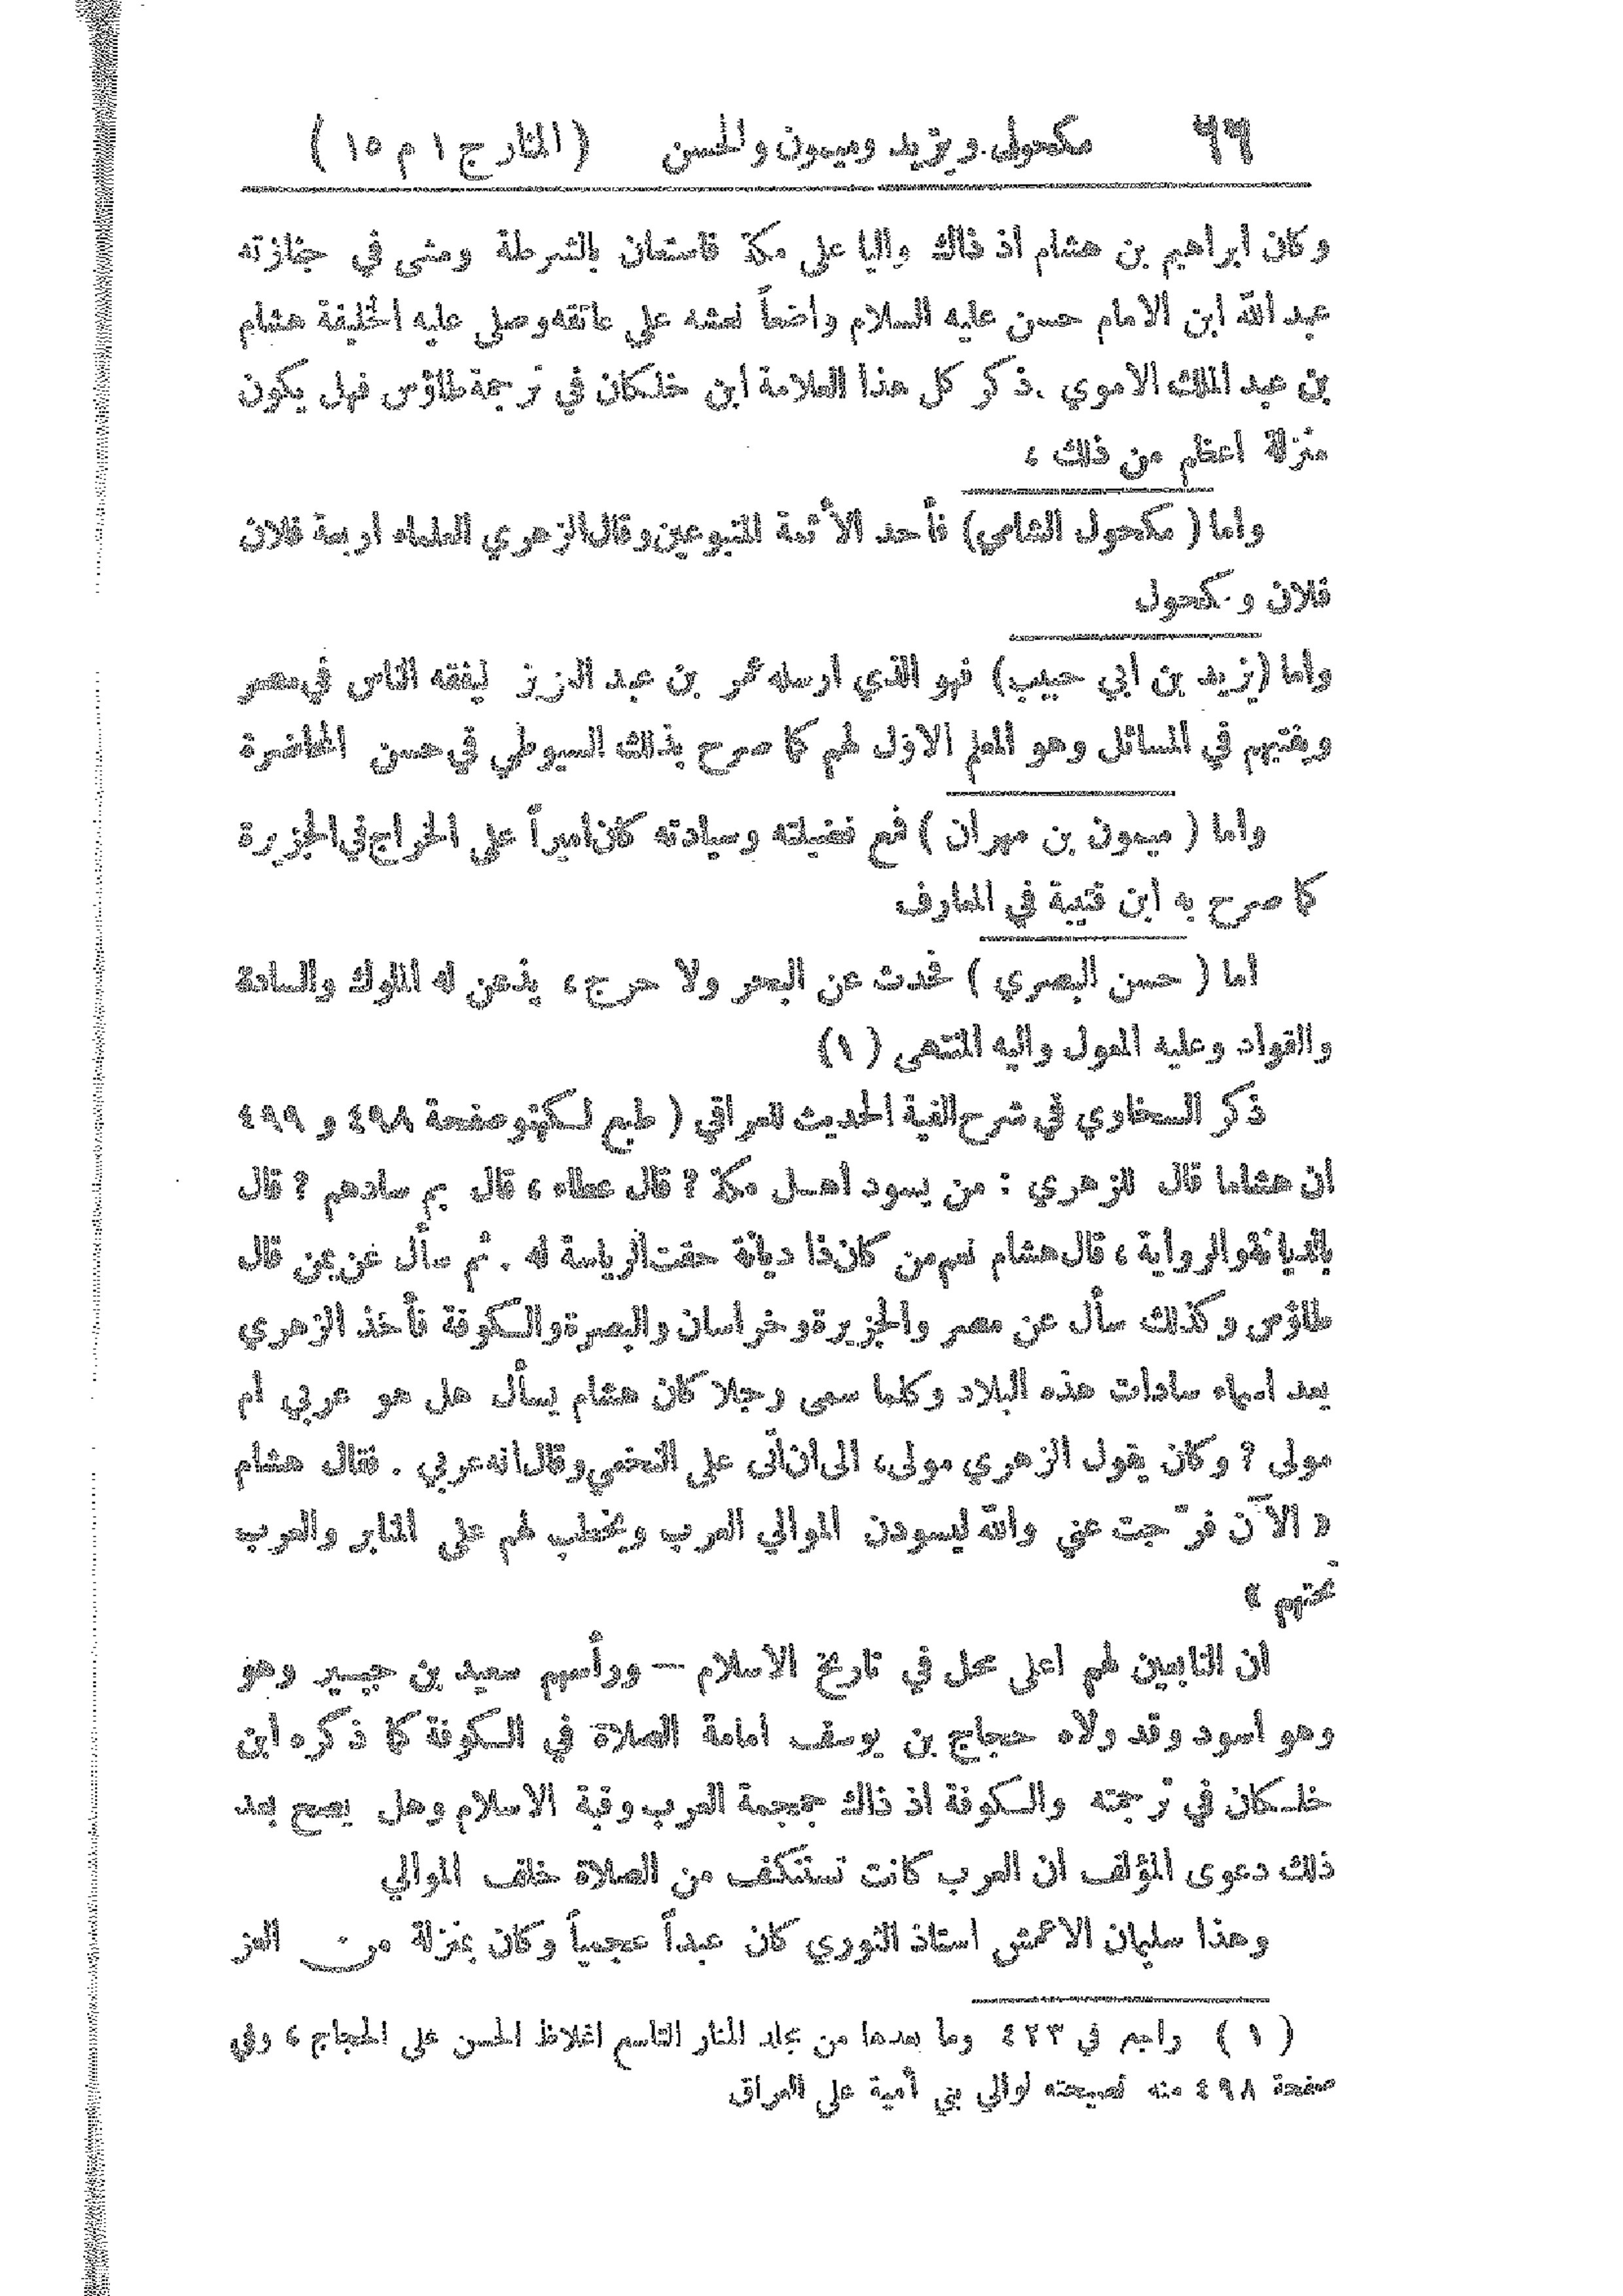 ٦٦ مكحول ويزيد وميمون والحسن (المنار ج ١ م ١٥)
وكان ابراهيم بن هشام اذ ذاك واليا على مكة فاستعان بالشرطة ومشى في جنازته
عبد الله ابن الامام حسن عليه السلام واضعاً نعشه على عاتقه وصلى عليه الخليفة هشام
بن عبد الملك الاموي . ذكر كل هذا العلامة ابن خلكان في ترجمة طاؤس فهل يكون
منزلة اعظم من ذلك ،
واما ( مكحول الشامي) فأحد الأئمة المتبوعين وقال الزهري العلماء اربعة فلان
فلان و مكحول
واما (يزيد بن ابي حبيب) فهو الذي ارسله عمر بن عبد العزيز ليفقه الناس في مصر
ويفتيهم في المسائل وهو المعلم الاوّل لهم كما صرح بذلك السيوطي في حسن المحاضرة
واما ( ميمون بن مهران ) فمع فضيلته وسيادته كان اميراً على الخراج في الجزيرة
كما صرح به ابن قتيبة في المعارف
اما ( حسن البصري ) فحدث عن البحر ولا حرج ، يذعن له الملوك والسادة
والقواد وعليه المعول واليه المنتهى (١)
ذكر السخاوي في شرح الفية الحديث للعراقي ( طبع لكهنو صفحة ٤٩٨ و ٤٩٩
ان هشاما قال للزهري : من يسود اهل مكة ? قال عطاء ، قال بم سادهم ? قال
بالديانة والرواية ، قال هشام نعم من كان ذا ديانة حقت الرياسة له . ثم سأل عن يمن قال
طاؤس وكذلك سأل عن مصر والجزيرة وخراسان والبصرة والكوفة فأخذ الزهري
يعد اسماء سادات هذه البلاد وكلما سمى رجلا كان هشام يسأل هل هو عربي ام
مولى ? وكان يقول الزهري مولى ، الى ان أتى على النخعي وقال انه عربي . فقال هشام
« الآن فرّجت عني والله ليسودن الموالي العرب ويخطب لهم على المنابر والعرب
تحتهم »
ان التابعين لهم اعلى محل في تاريخ الاسلام — ورأسهم سعيد بن جبير وهو
وهو اسود وقد ولاه حجاج بن يوسف امامة الصلاة في الكوفة كما ذكره ابن
خلكان في ترجمته والكوفة اذ ذاك جمجمة العرب وقبة الاسلام وهل يصح بعد
ذلك دعوى المؤلف ان العرب كانت تستنكف من الصلاة خلف الموالي
وهذا سليمان الاعمش استاذ الثوري كان عبداً عجمياً وكان بمنزلة من العز
( ١ ) راجع في ٤٢٣ وما بعدها من مجلد المنار التاسع اغلاظ الحسن على الحجاج ، وفي
صفحة ٤٩٨ منه نصيحته لوالي بني أمية على العراق